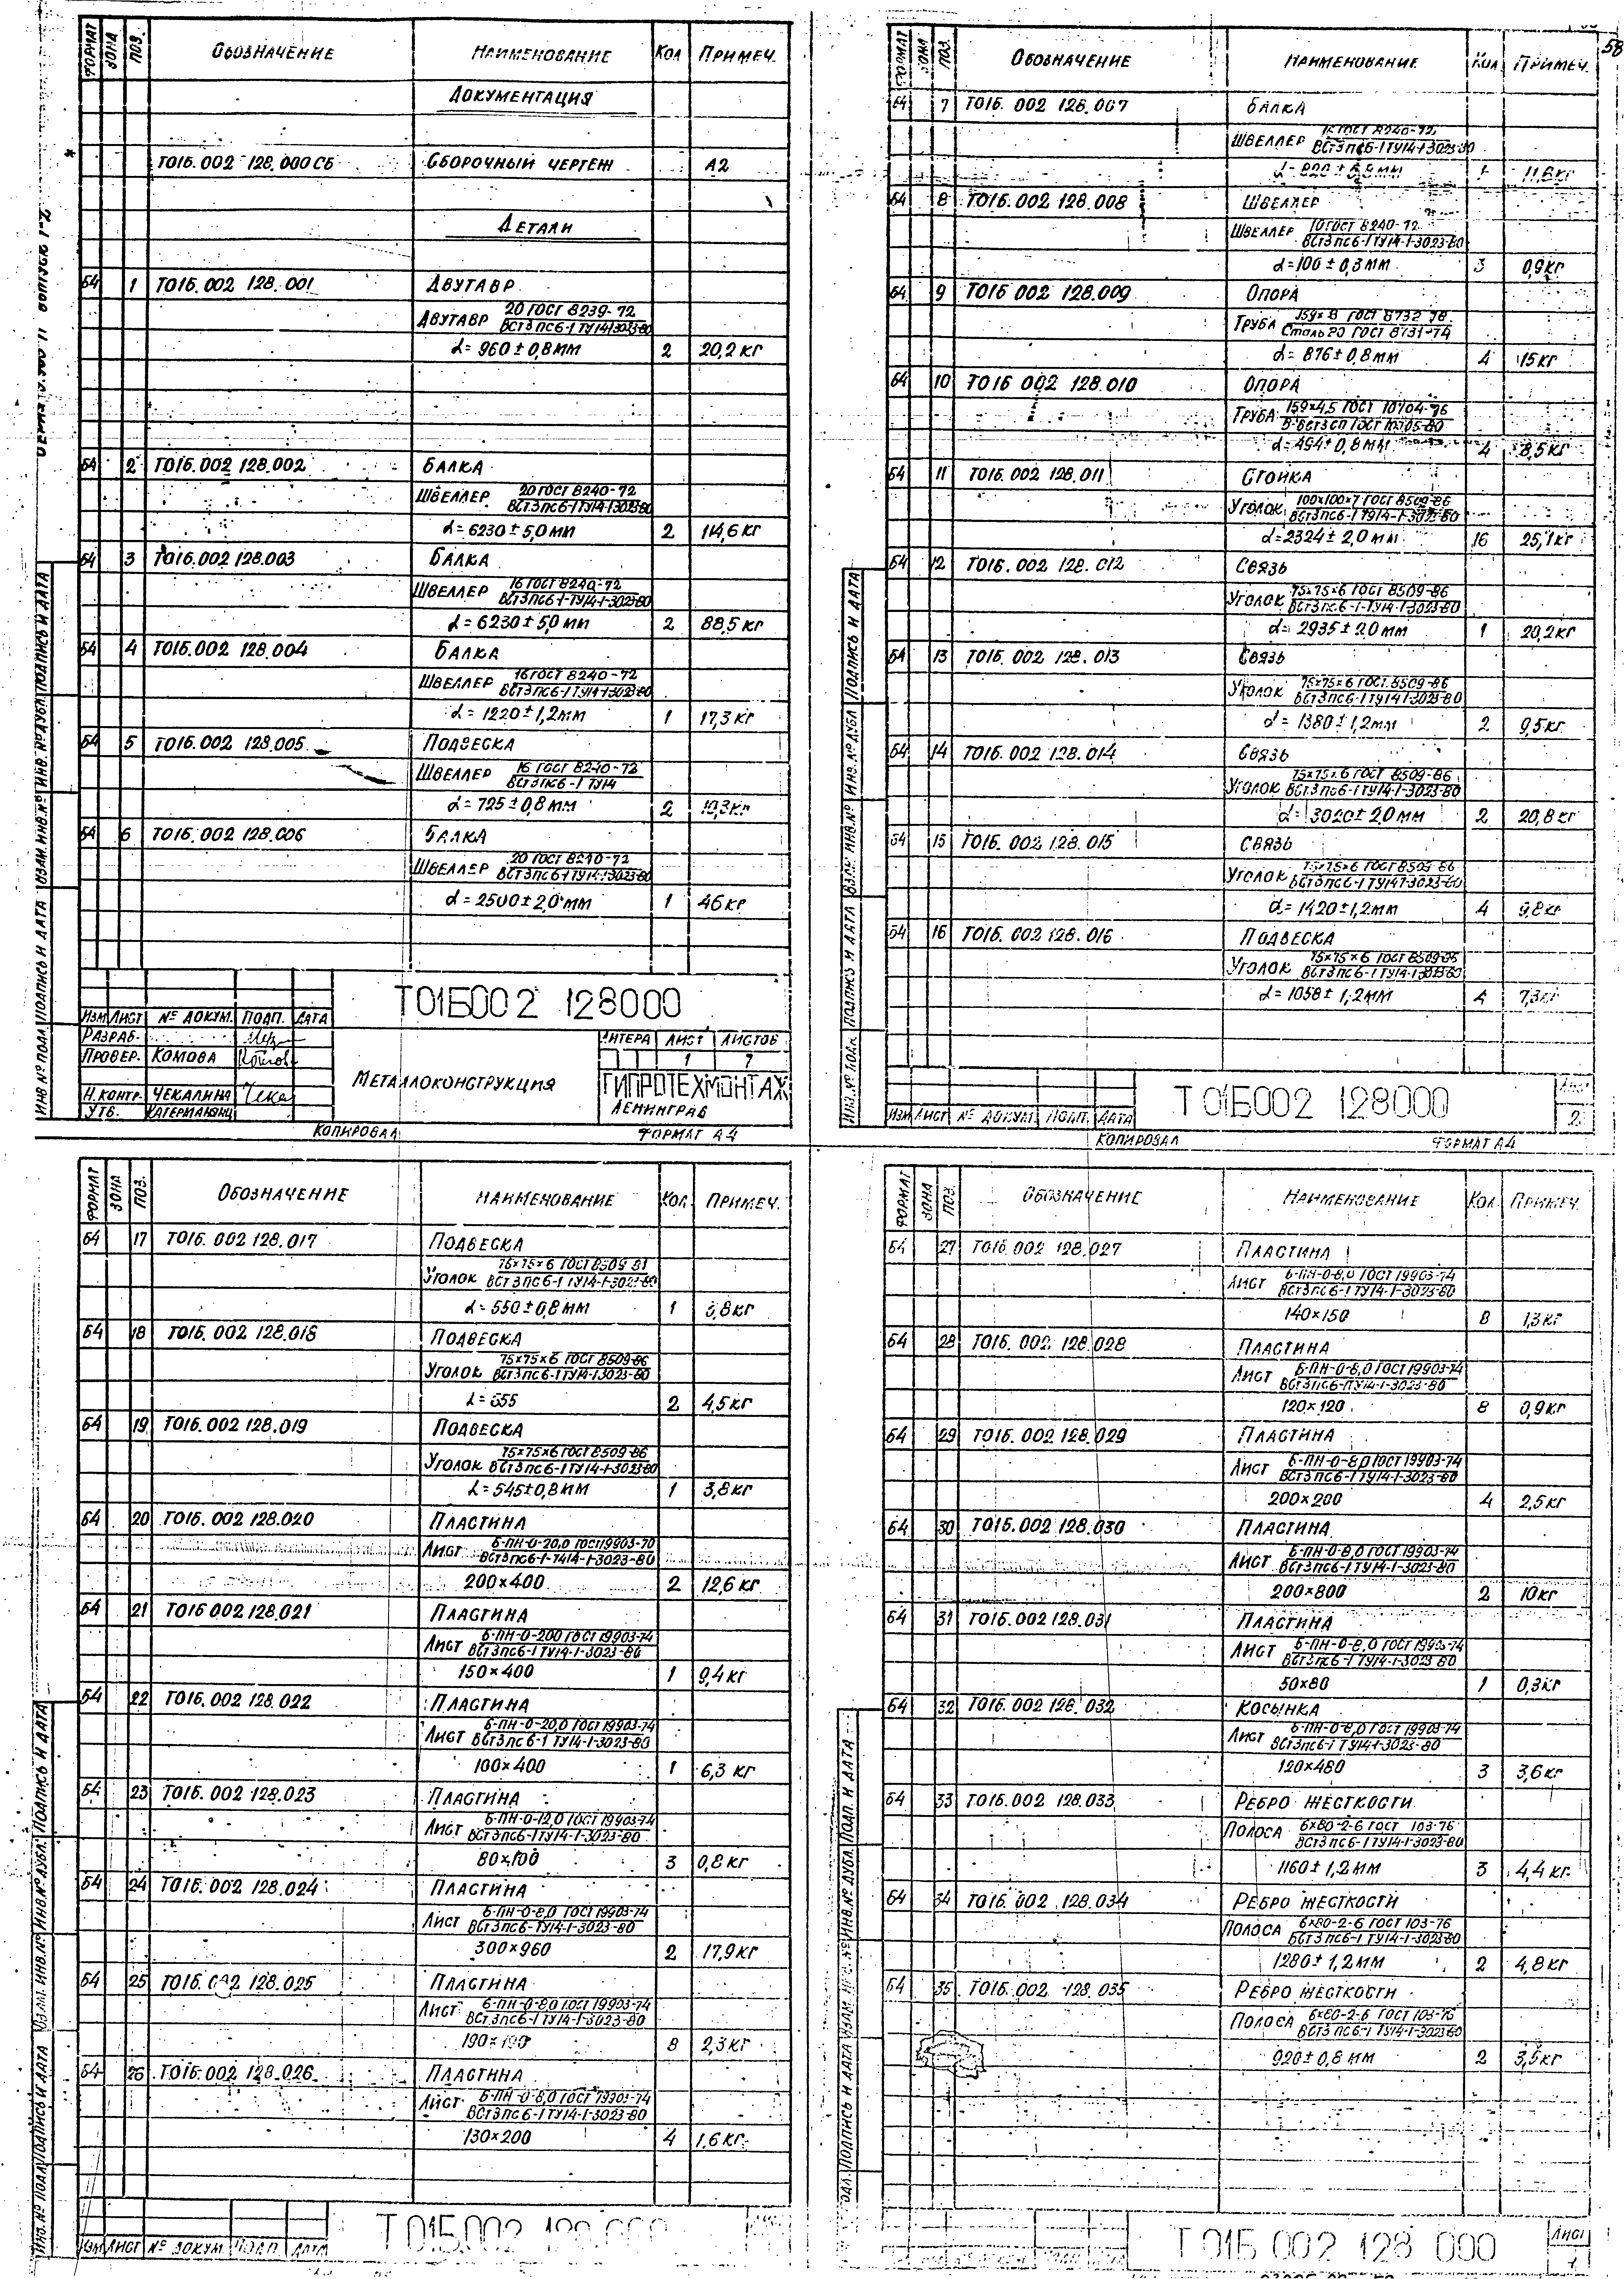 ФОРМАТ ЗОНА ПОЗ. ОБОЗНАЧЕНИЕ НАИМЕНОВАНИЕ КОЛ ПРИМЕЧ.
ДОКУМЕНТАЦИЯ
Т01Б.002 128.000 СБ СБОРОЧНЫЙ ЧЕРТЕЖ А2
ДЕТАЛИ
Б4 1 Т01Б.002 128.001 ДВУТАВР
ДВУТАВР 20 ГОСТ 8239-72
ВСт3пс6-1 ТУ14-1-3023-80
L=960±0,8мм 2 20,2 кг
Б4 2 Т01Б.002 128.002 БАЛКА
ШВЕЛЛЕР 20 ГОСТ 8240-72
ВСт3пс6-1 ТУ14-1-3023-80
L=6230±5,0мм 2 114,6 кг
Б4 3 Т01Б.002 128.003 БАЛКА
ШВЕЛЛЕР 16 ГОСТ 8240-72
ВСт3пс6-1-ТУ14-1-3023-80
L=6230±5,0мм 2 88,5 кг
Б4 4 Т01Б.002 128.004 БАЛКА
ШВЕЛЛЕР 16 ГОСТ 8240-72
ВСт3пс6-1 ТУ14-1-3023-80
L=1220±1,2мм 1 17,3 кг
Б4 5 Т01Б.002 128.005 ПОДВЕСКА
ШВЕЛЛЕР 16 ГОСТ 8240-72
ВСт3пс6-1 ТУ14
L=725±0,8мм 2 10,3кг
Б4 6 Т01Б.002 128.006 БАЛКА
ШВЕЛЛЕР 20 ГОСТ 8240-72
ВСт3пс6-1 ТУ14-1-3023-80
L=2500±2,0мм 1 46 кг
Т01Б002 128000
ИЗМ ЛИСТ № ДОКУМ. ПОДП. ДАТА
РАЗРАБ.
ПРОВЕР. КОМОВА
Н.КОНТР. ЧЕКАЛИНА
УТВ.
МЕТАЛЛОКОНСТРУКЦИЯ
ЛИТЕРА ЛИСТ ЛИСТОВ
1 7
ГИПРОТЕХМОНТАЖ
ЛЕНИНГРАД
КОПИРОВАЛ ФОРМАТ А4
ИНВ № ПОДЛ ПОДПИСЬ И ДАТА ВЗАМ ИНВ.№ ИНВ.№ ДУБЛ. ПОДПИСЬ И ДАТА
58
ФОРМАТ ЗОНА ПОЗ. ОБОЗНАЧЕНИЕ НАИМЕНОВАНИЕ КОЛ ПРИМЕЧ.
Б4 7 Т01Б.002 128.007 БАЛКА
ШВЕЛЛЕР 16 ГОСТ 8240-72
ВСт3пс6-1 ТУ14-1-3023-80
L=820±0,8мм 1 11,6кг
Б4 8 Т01Б.002 128.008 ШВЕЛЛЕР
ШВЕЛЛЕР 10 ГОСТ 8240-72
ВСт3пс6-1 ТУ14-1-3023-80
L=100±0,3мм 3 0,9кг
Б4 9 Т01Б 002 128.009 ОПОРА
ТРУБА 159×8 ГОСТ 8732-78
Сталь20 ГОСТ 8731-74
L=876±0,8мм 4 15кг
Б4 10 Т01Б 002 128.010 ОПОРА
ТРУБА 159×4,5 ГОСТ 10704-76
В-ВСт3сп ГОСТ 10705-80
L=494±0,8мм 4 8,5кг
Б4 11 Т01Б.002 128.011 СТОЙКА
УГОЛОК 100×100×7 ГОСТ 8509-86
ВСт3пс6-1 ТУ14-1-3023-80
L=2324±2,0мм 16 25,1кг
Б4 12 Т01Б.002 128.012 СВЯЗЬ
УГОЛОК 75×75×6 ГОСТ 8509-86
ВСт3пс6-1-ТУ14-1-3023-80
L=2935±2,0мм 1 20,2кг
Б4 13 Т01Б.002 128.013 СВЯЗЬ
УГОЛОК 75×75×6 ГОСТ 8509-86
ВСт3пс6-1 ТУ14-1-3023-80
L=1380±1,2мм 2 9,5кг
Б4 14 Т01Б.002 128.014 СВЯЗЬ
УГОЛОК 75×75×6 ГОСТ 8509-86
ВСт3пс6-1 ТУ14-1-3023-80
L=3020±2,0мм 2 20,8кг
Б4 15 Т01Б.002 128.015 СВЯЗЬ
УГОЛОК 75×75×6 ГОСТ 8509-86
ВСт3пс6-1 ТУ14-1-3023-80
L=1420±1,2мм 4 9,8кг
Б4 16 Т01Б.002 128.016 ПОДВЕСКА
УГОЛОК 75×75×6 ГОСТ 8509-86
ВСт3пс6-1 ТУ14-1-3023-80
L=1058±1,2мм 4 7,3кг
Т01Б002 128000
ЛИСТ
2
ИЗМ ЛИСТ № ДОКУМ. ПОДП. ДАТА
КОПИРОВАЛ ФОРМАТ А4
ИНВ.№ ПОДЛ ПОДПИСЬ И ДАТА ВЗАМ ИНВ.№ ИНВ № ДУБЛ ПОДПИСЬ И ДАТА
ФОРМАТ ЗОНА ПОЗ. ОБОЗНАЧЕНИЕ НАИМЕНОВАНИЕ КОЛ. ПРИМЕЧ.
Б4 17 Т01Б.002 128.017 ПОДВЕСКА
УГОЛОК 75×75×6 ГОСТ 8509
ВСт3пс6-1 ТУ14-1-3023-80
L=550±0,8мм 1 3,8кг
Б4 18 Т01Б.002 128.018 ПОДВЕСКА
УГОЛОК 75×75×6 ГОСТ 8509-86
ВСт3пс6-1 ТУ14-1-3023-80
L=655 2 4,5кг
Б4 19 Т01Б.002 128.019 ПОДВЕСКА
УГОЛОК 75×75×6 ГОСТ 8509-86
ВСт3пс6-1 ТУ14-1-3023-80
L=545±0,8мм 1 3,8кг
Б4 20 Т01Б.002 128.020 ПЛАСТИНА
ЛИСТ Б-ПН-0-20,0 ГОСТ19903-70
ВСт3пс6-1-ТУ14-1-3023-80
200×400 2 12,6 кг
Б4 21 Т01Б 002 128.021 ПЛАСТИНА
ЛИСТ Б-ПН-0-20,0 ГОСТ 19903-74
ВСт3пс6-1 ТУ14-1-3023-80
150×400 1 9,4кг
Б4 22 Т01Б.002 128.022 ПЛАСТИНА
ЛИСТ Б-ПН-0-20,0 ГОСТ 19903-74
ВСт3пс6-1 ТУ14-1-3023-80
100×400 1 6,3 кг
Б4 23 Т01Б.002 128.023 ПЛАСТИНА
ЛИСТ Б-ПН-0-12,0 ГОСТ 19903-74
ВСт3пс6-1 ТУ14-1-3023-80
80×100 3 0,8 кг
Б4 24 Т01Б.002 128.024 ПЛАСТИНА
ЛИСТ Б-ПН-0-8,0 ГОСТ 19903-74
ВСт3пс6-ТУ14-1-3023-80
300×960 2 17,9кг
Б4 25 Т01Б.002 128.025 ПЛАСТИНА
ЛИСТ Б-ПН-0-8,0 ГОСТ 19903-74
ВСт3пс6-1 ТУ14-1-3023-80
190×190 8 2,3кг
Б4 26 Т01Б.002 128.026 ПЛАСТИНА
ЛИСТ Б-ПН-0-8,0 ГОСТ 19903-74
ВСт3пс6-1 ТУ14-1-3023-80
130×200 4 1,6кг
Т01Б.002 128 000
ИЗМ ЛИСТ № ДОКУМ ПОДП. ДАТА
ИНВ. № ПОДЛ ПОДПИСЬ И ДАТА ВЗАМ ИНВ.№ ИНВ.№ ДУБЛ. ПОДПИСЬ И ДАТА
ФОРМАТ ЗОНА ПОЗ. ОБОЗНАЧЕНИЕ НАИМЕНОВАНИЕ КОЛ ПРИМЕЧ.
Б4 27 Т01Б.002 128.027 ПЛАСТИНА
ЛИСТ Б-ПН-0-8,0 ГОСТ 19903-74
ВСт3пс6-1 ТУ14-1-3023-80
140×150 8 1,3 кг
Б4 28 Т01Б.002 128.028 ПЛАСТИНА
ЛИСТ Б-ПН-0-8,0 ГОСТ 19903-74
ВСт3пс6-1 ТУ14-1-3023-80
120×120 8 0,9кг
Б4 29 Т01Б.002 128.029 ПЛАСТИНА
ЛИСТ Б-ПН-0-8,0 ГОСТ 19903-74
ВСт3пс6-1 ТУ14-1-3023-80
200×200 4 2,5кг
Б4 30 Т01Б.002 128.030 ПЛАСТИНА
ЛИСТ Б-ПН-0-8,0 ГОСТ 19903-74
ВСт3пс6-1 ТУ14-1-3023-80
200×800 2 10кг
Б4 31 Т01Б.002 128.031 ПЛАСТИНА
ЛИСТ Б-ПН-0-8,0 ГОСТ 19903-74
ВСт3пс6-1 ТУ14-1-3023-80
50×80 1 0,3кг
Б4 32 Т01Б.002 128.032 КОСЫНКА
ЛИСТ Б-ПН-0-8,0 ГОСТ 19903-74
ВСт3пс6-1 ТУ14-1-3023-80
120×480 3 3,6кг
Б4 33 Т01Б.002 128.033 РЕБРО ЖЕСТКОСТИ
ПОЛОСА 6×80-2-6 ГОСТ 103-76
ВСт3пс6-1 ТУ14-1-3023-80
1160±1,2мм 3 4,4 кг
Б4 34 Т01Б.002 128.034 РЕБРО ЖЕСТКОСТИ
ПОЛОСА 6×80-2-6 ГОСТ 103-76
ВСт3пс6-1 ТУ14-1-3023-80
1280±1,2мм 2 4,8 кг
Б4 35 Т01Б.002 128.035 РЕБРО ЖЕСТКОСТИ
ПОЛОСА 6×80-2-6 ГОСТ 103-76
ВСт3пс6-1 ТУ14-1-3023-80
920±0,8 мм 2 3,5кг
Т01Б 002 128 000
ЛИСТ